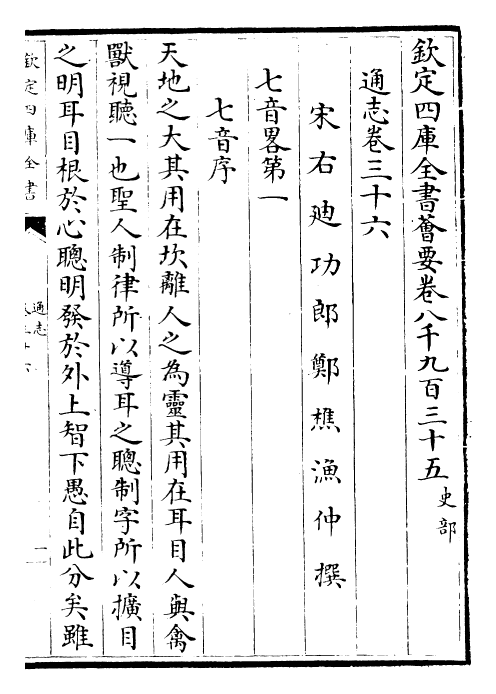 欽定四庫全書薈要卷八千九百三十五 史部
通志卷三十六
宋右迪功郎鄭樵漁仲撰
七音畧第一
七音序
天地之大其用在坎離人之為靈其用在耳目人與禽
獸視聽一也聖人制律所以導耳之聰制字所以擴目
之明耳目根於心聰明發於外上智下愚自此分矣雖
欽定四庫全書
通志
卷三十六
一